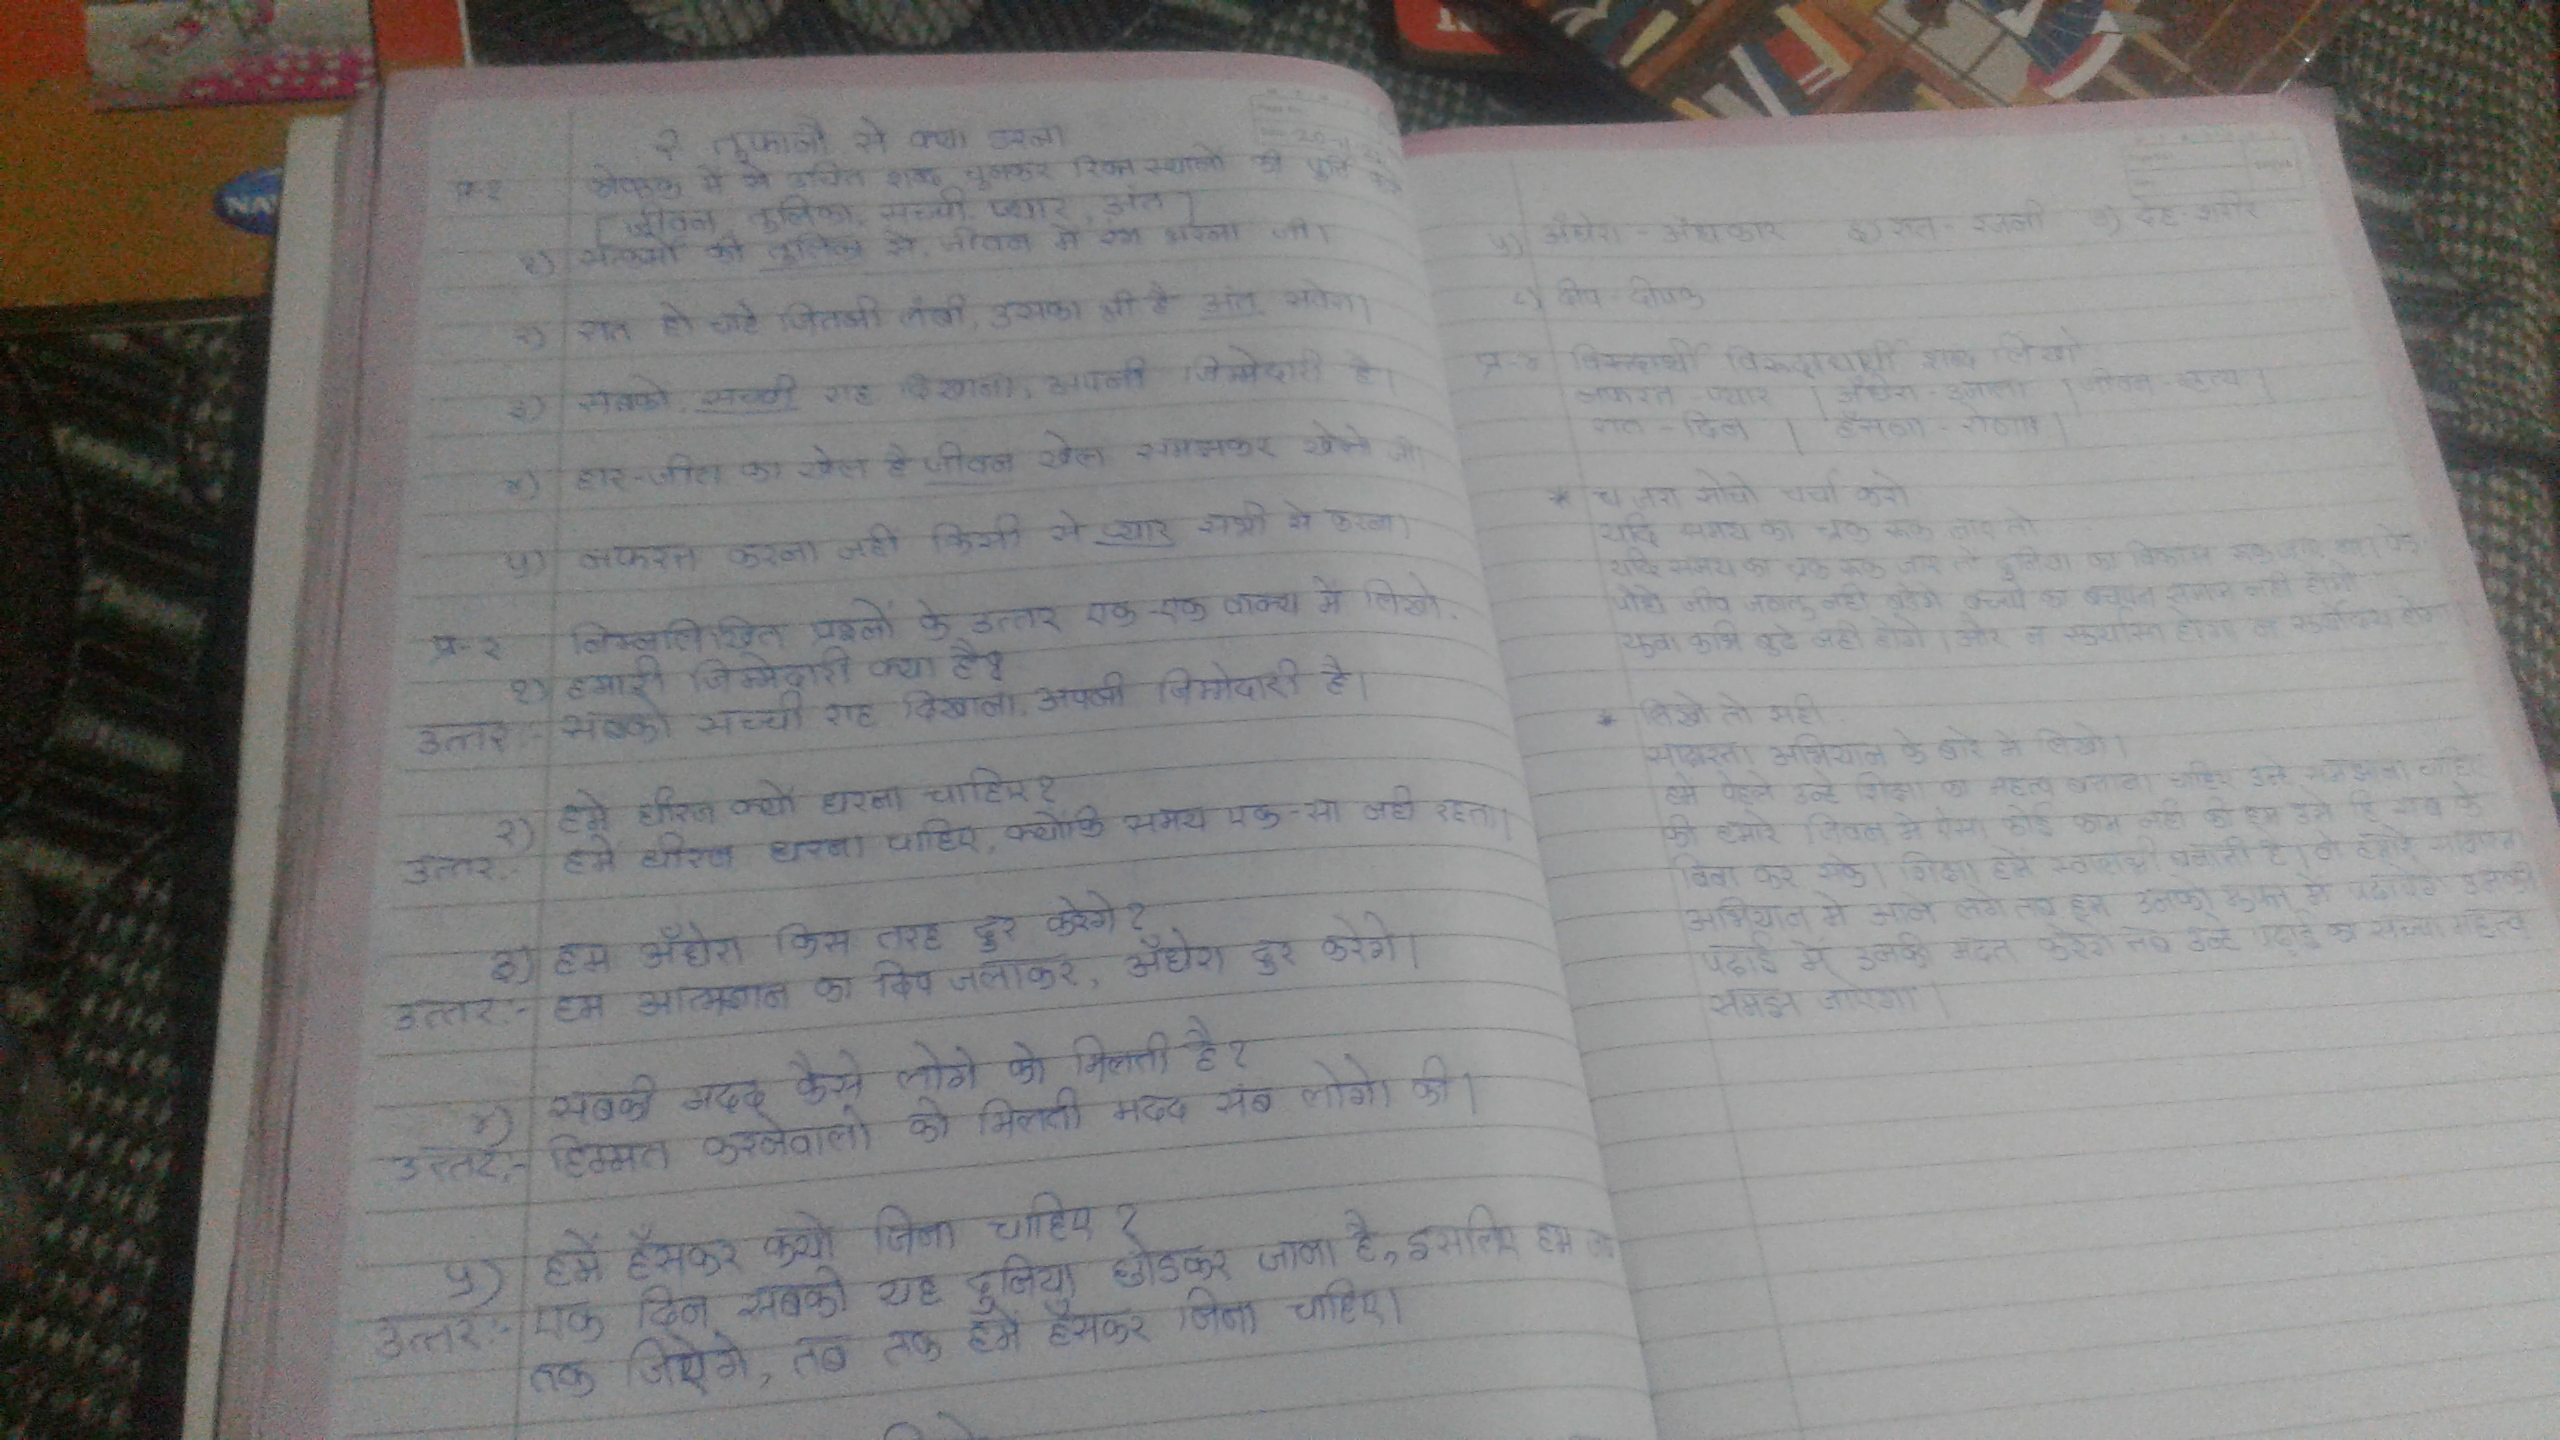 २ तूफानों से क्या डरना
प्र-१ कोष्ठक में से उचित शब्द चुनकर रिक्त स्थानों की पूर्ति करो
[जीवन, तूलिका, सच्ची, प्यार, अंत]
१) सत्कर्मों की तूलिका से, जीवन में रंग भरना जी।
२) रात हो चाहे जितनी लंबी, उसका भी है अंत सवेरा।
३) सबको सच्ची राह दिखाना, अपनी जिम्मेदारी है।
४) हार-जीत का खेल है जीवन खेल समझकर खेलो जी।
५) नफरत करना नहीं किसी से प्यार सभी से करना।
प्र-२ निम्नलिखित प्रश्नों के उत्तर एक-एक वाक्य में लिखो.
१) हमारी जिम्मेदारी क्या है?
उत्तर:- सबको सच्ची राह दिखाना, अपनी जिम्मेदारी है।
२) हमें धीरज क्यों धरना चाहिए?
उत्तर:- हमें धीरज धरना चाहिए, क्योंकि समय एक-सा नही रहता।
३) हम अँधेरा किस तरह दुर करेंगे?
उत्तर:- हम आत्मज्ञान का दिप जलाकर, अँधेरा दुर करेगे।
४) सबकी मदद कैसे लोगो को मिलती है?
उत्तर:- हिम्मत करनेवालो को मिलती मदद सब लोगो की।
५) हमें हँसकर क्यो जिना चाहिए?
उत्तर:- एक दिन सबको यह दुनिया छोडकर जाना है, इसलिए हम जब
तक जिएंगे, तब तक हमें हँसकर जिना चाहिए।
NA
५) अँधेरा - अंधकार ६) रात - रजनी ७) देह - शरीर
८) दीप - दीपक
प्र-४ विरुद्धार्थी शब्द लिखो
नफरत - प्यार | अँधेरा - उजाला | जीवन - मृत्यु |
रात - दिन | हँसना - रोना |
* जरा सोचो चर्चा करो
यदि समय का चक्र रूक जाए तो
यदि समय का चक्र रूक जाए तो दुनिया का विकास रूक जाए गा। पेड
पौधे जीव जन्तु नही बढेगे बच्चो का बचपन समाप्त नही होगा
युवा कभि बुढे नही होगे। और न सुर्यास्त होगा न सुर्योदय होगा
* लिखो तो सही
साक्षरता अभियान के बारे मे लिखो।
हमे पेहले उन्हे शिक्षा का महत्व बताना चाहिए उन्हे समझाना चाहिए
की हमारे जिवन मे ऐसा कोई काम नही की हम उसे शिक्षा के
बिना कर सके। शिक्षा हमे स्वालंबी बनाती है। वो हमारे साक्षरता
अभियान मे आने लगे तब हम उनको मुफ्त मे पढाएंगे उनकी
पढाई में उनकी मदत करेगे तब उन्हे पढाई का सच्चा महत्व
समझ जाएगा।